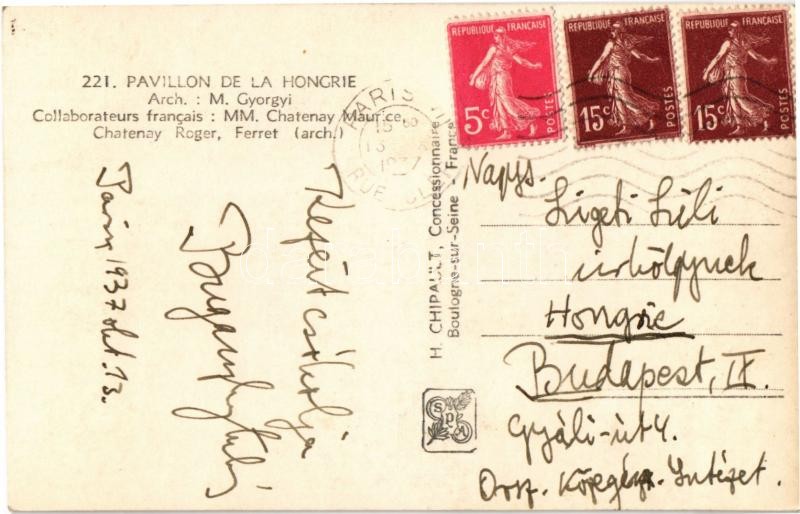 221. PAVILLON DE LA HONGRIE
Arch. : M. Gyorgyi
Collaborateurs français : MM. Chatenay Maurice,
Chatenay Roger, Ferret (arch.)
REPUBLIQUE FRANÇAISE
5c
POSTES
REPUBLIQUE FRANÇAISE
15c
POSTES
REPUBLIQUE FRANÇAISE
15c
POSTES
PARIS
1937
RUE
H. CHIPAULT, Concessionnaire
Boulogne-sur-Seine - France
SPA
Páris, 1937 okt. 13.
Kezeit csókolja
Nagys.
Ligeti Lili
úrhölgynek
Hongrie
Budapest, IX.
Gyáli-út 4.
Orsz. Közegész. Intézet.